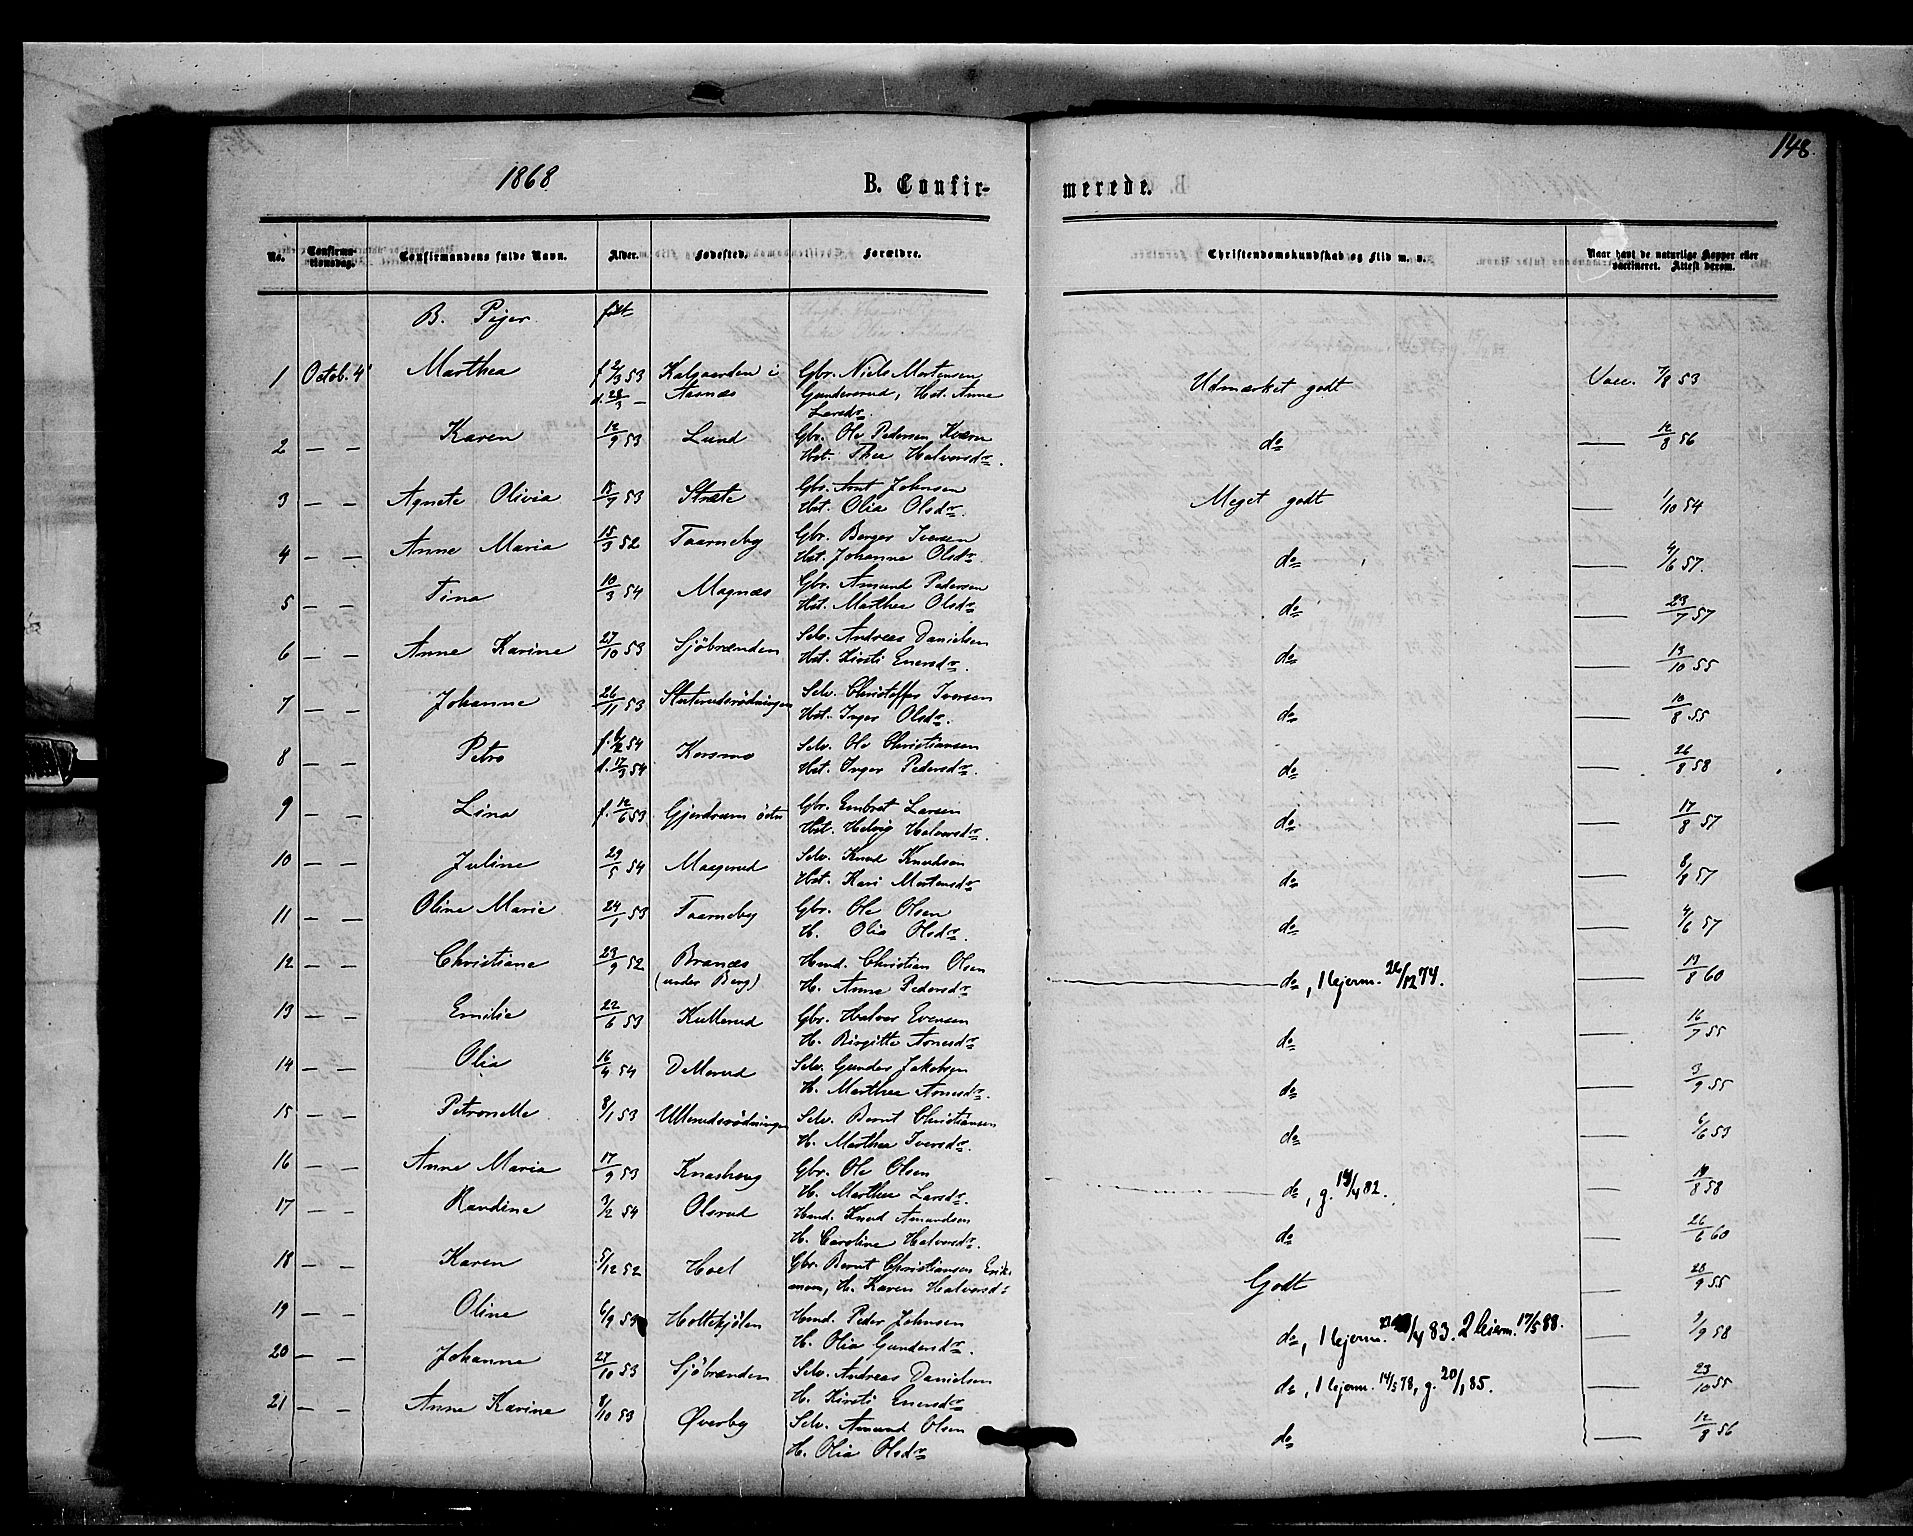 148
1868
B. Confir-
merede.
No. Confirmationsdag. Confirmandens fulde Navn. Alder. Fødested. Forældre. Christendomskundskab og Flid m. v. Naar havt de naturlige Kopper eller vaccineret. Attest derom.
B. Piger. født
1 Octob. 4 Marthea f 2/3 53 Kalgaarden i Gbr. Niels Mortensen Udmærket godt Vacc. 7/8 53
d. 28/3 — Aasnæs Gundersrud, Hst. Anne
Larsdr.
2 — — Karen 12/9 53 Lund Gbr. Ole Pedersen Kværn do — 12/8 56
Hst. Thea Halvorsdr.
3 — — Agnete Olivia 18/7 53 Stræte Gbr. Arnt Johnsen Meget godt — 1/10 54
Hst. Olia Olsdr.
4 — — Anne Maria 15/3 52 Taarneby Gbr. Berger Iversen do — 4/6 57.
Hst. Johanne Olsdr.
5 — — Tina 10/3 54 Magnæs Gbr. Amund Pedersen do — 23/7 57
Hst. Marthea Olsdr
6 — — Anne Karine 27/10 53 Sjøbrænden Selv. Andreas Danielsen do — 13/10 55
Hst. Kirsti Enersdr.
7 — — Johanne 26/11 53 Sluterudsrødningen Selv. Christoffer Iversen do — 10/8 55
Hst. Inger Olsdr.
8 — — Petra f. 6/2 54 Korsmo Selv. Ole Christiansen do — 26/8 58
d. 17/3 54 Hst. Inger Pedersdr.
9 — — Lina f. 12/6 53 Gjerdrum østre Gbr. Embret Larsen do — 17/8 57
Hst. Helvig Halvorsdr.
10 — — Juline 29/5 54 Maagerud Selv. Knud Knudsen do — 8/8 57
Hst. Kari Mortensdr
11 — — Oline Marie 24/1 53 Taarneby Gbr. Ole Olsen do — 4/6 57
H. Olia Olsdr.
12 — — Christiane 23/9 52 Branæs Hmd. Christian Olsen do, 1 lejerm. 26/12 74. — 13/8 60
(under Berg) H. Anne Pedersdr
13 — — Emilie 22/6 53 Kullerud Gbr. Halvor Evensen do — 16/7 55
H. Birgitte Arnesdr
14 — — Olia 16/4 54 Dellerud Selv. Gunder Jakobsen do — 3/9 55
H. Marthea Arnesdr.
15 — — Petronelle 8/1 53 Ullerudsrødningen Selv. Bernt Christiansen do — 6/6 53
H. Marthea Iversdr.
16 — — Anne Maria 17/9 53 Knashoug Gbr. Ole Olsen do, g. 14/4 82. — 19/8 58
H. Marthea Larsdr.
17 — — Randine 3/2 54 Olsrud Hmd. Knud Amundsen do — 26/6 60
H. Caroline Halvorsdr.
18 — — Karen 5/12 52 Hoel Gbr. Bernt Christiansen Erik- Godt — 28/9 55
mom, H. Karen Halvorsdr
19 — — Oline 6/9 53 Holtekjølen Hmd. Peder Johnsen do, 1 lejerm. /4 83. 2 leierm. 17/5 88. — 2/9 58
H. Olia Gundersdr.
20 — — Johanne 27/10 53 Sjøbrænden Selv. Andreas Danielsen do, 1 lejerm. 14/5 78, g. 20/1 85. — 23/10 55
H. Kirsti Enersdr
21 — — Anne Karine 8/10 53 Øverby Selv. Amund Olsen do — 12/8 56
H. Olia Olsdr